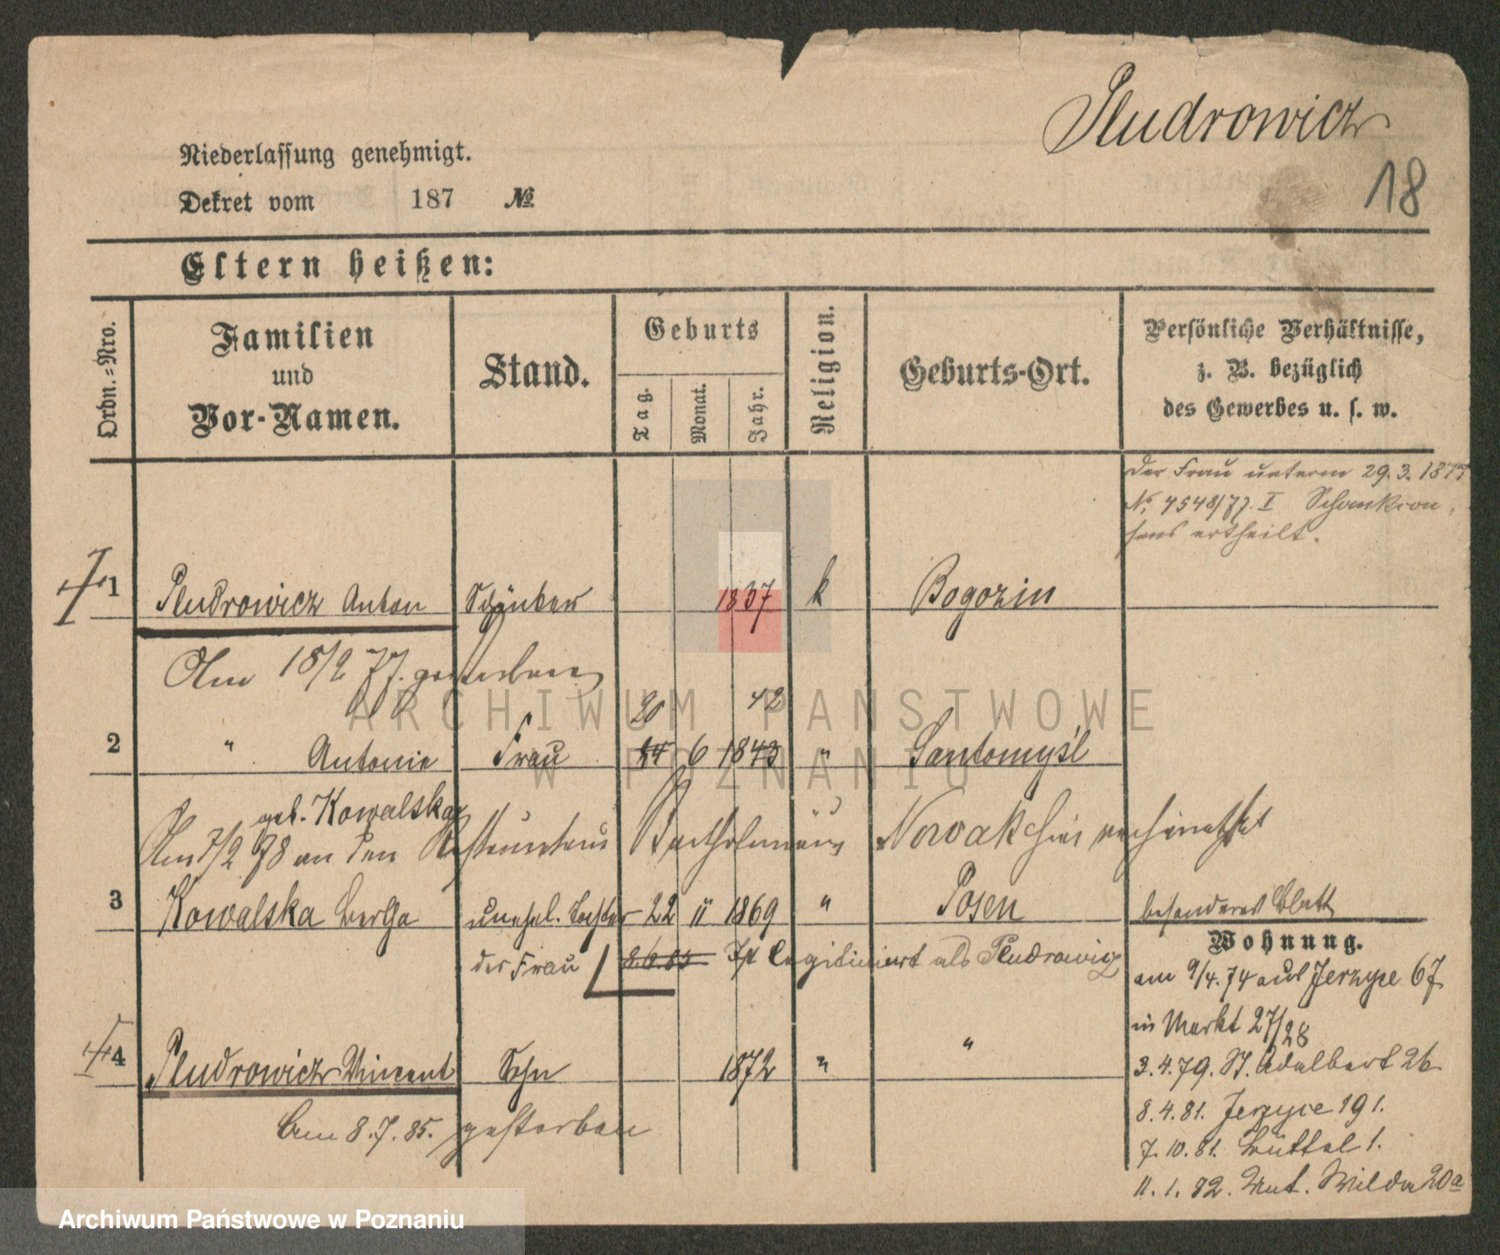 Pludrowicz
18
Niederlassung genehmigt.
Dekret vom 187 №
Eltern heißen:
Ordn.-Nro.
Familien und Vor-Namen.
Stand.
Geburts
Tag.
Monat.
Jahr.
Religion.
Geburts-Ort.
Persönliche Verhältnisse,
z. B. bezüglich
des Gewerbes u. s. w.
Der Frau unterm 29.3.1877
No 4548/77. I Schankkon-
sens ertheilt.
1 Pludrowicz Anton Schänker 1837 k Bogozin
Am 18/2 77. gestorben
20 42
2 " Antonie Frau 6 1843 " Santomyśl
geb. Kowalska
Am 7/2 78 an den Restaurateur Bartholomäus Nowak hier verheirathet
3 Kowalska unehel. Tochter 22 11 1869 " Posen besonderes Blatt
der Frau 8.6.85 Ist legitimirt als Pludrowicz
Wohnung.
am 9/4.74 aus Jerzyce 67
in Markt 27/28
4 Pludrowicz Vincent Sohn 1872 " "
3.4.79. St. Adalbert 26
Am 8.7.85. gestorben
8.4.81. Jerzyce 191.
7.10.81. Büttel 1.
11.1.82. Unt. Wilda 20a
ARCHIWUM PAŃSTWOWE
W POZNANIU
Archiwum Państwowe w Poznaniu